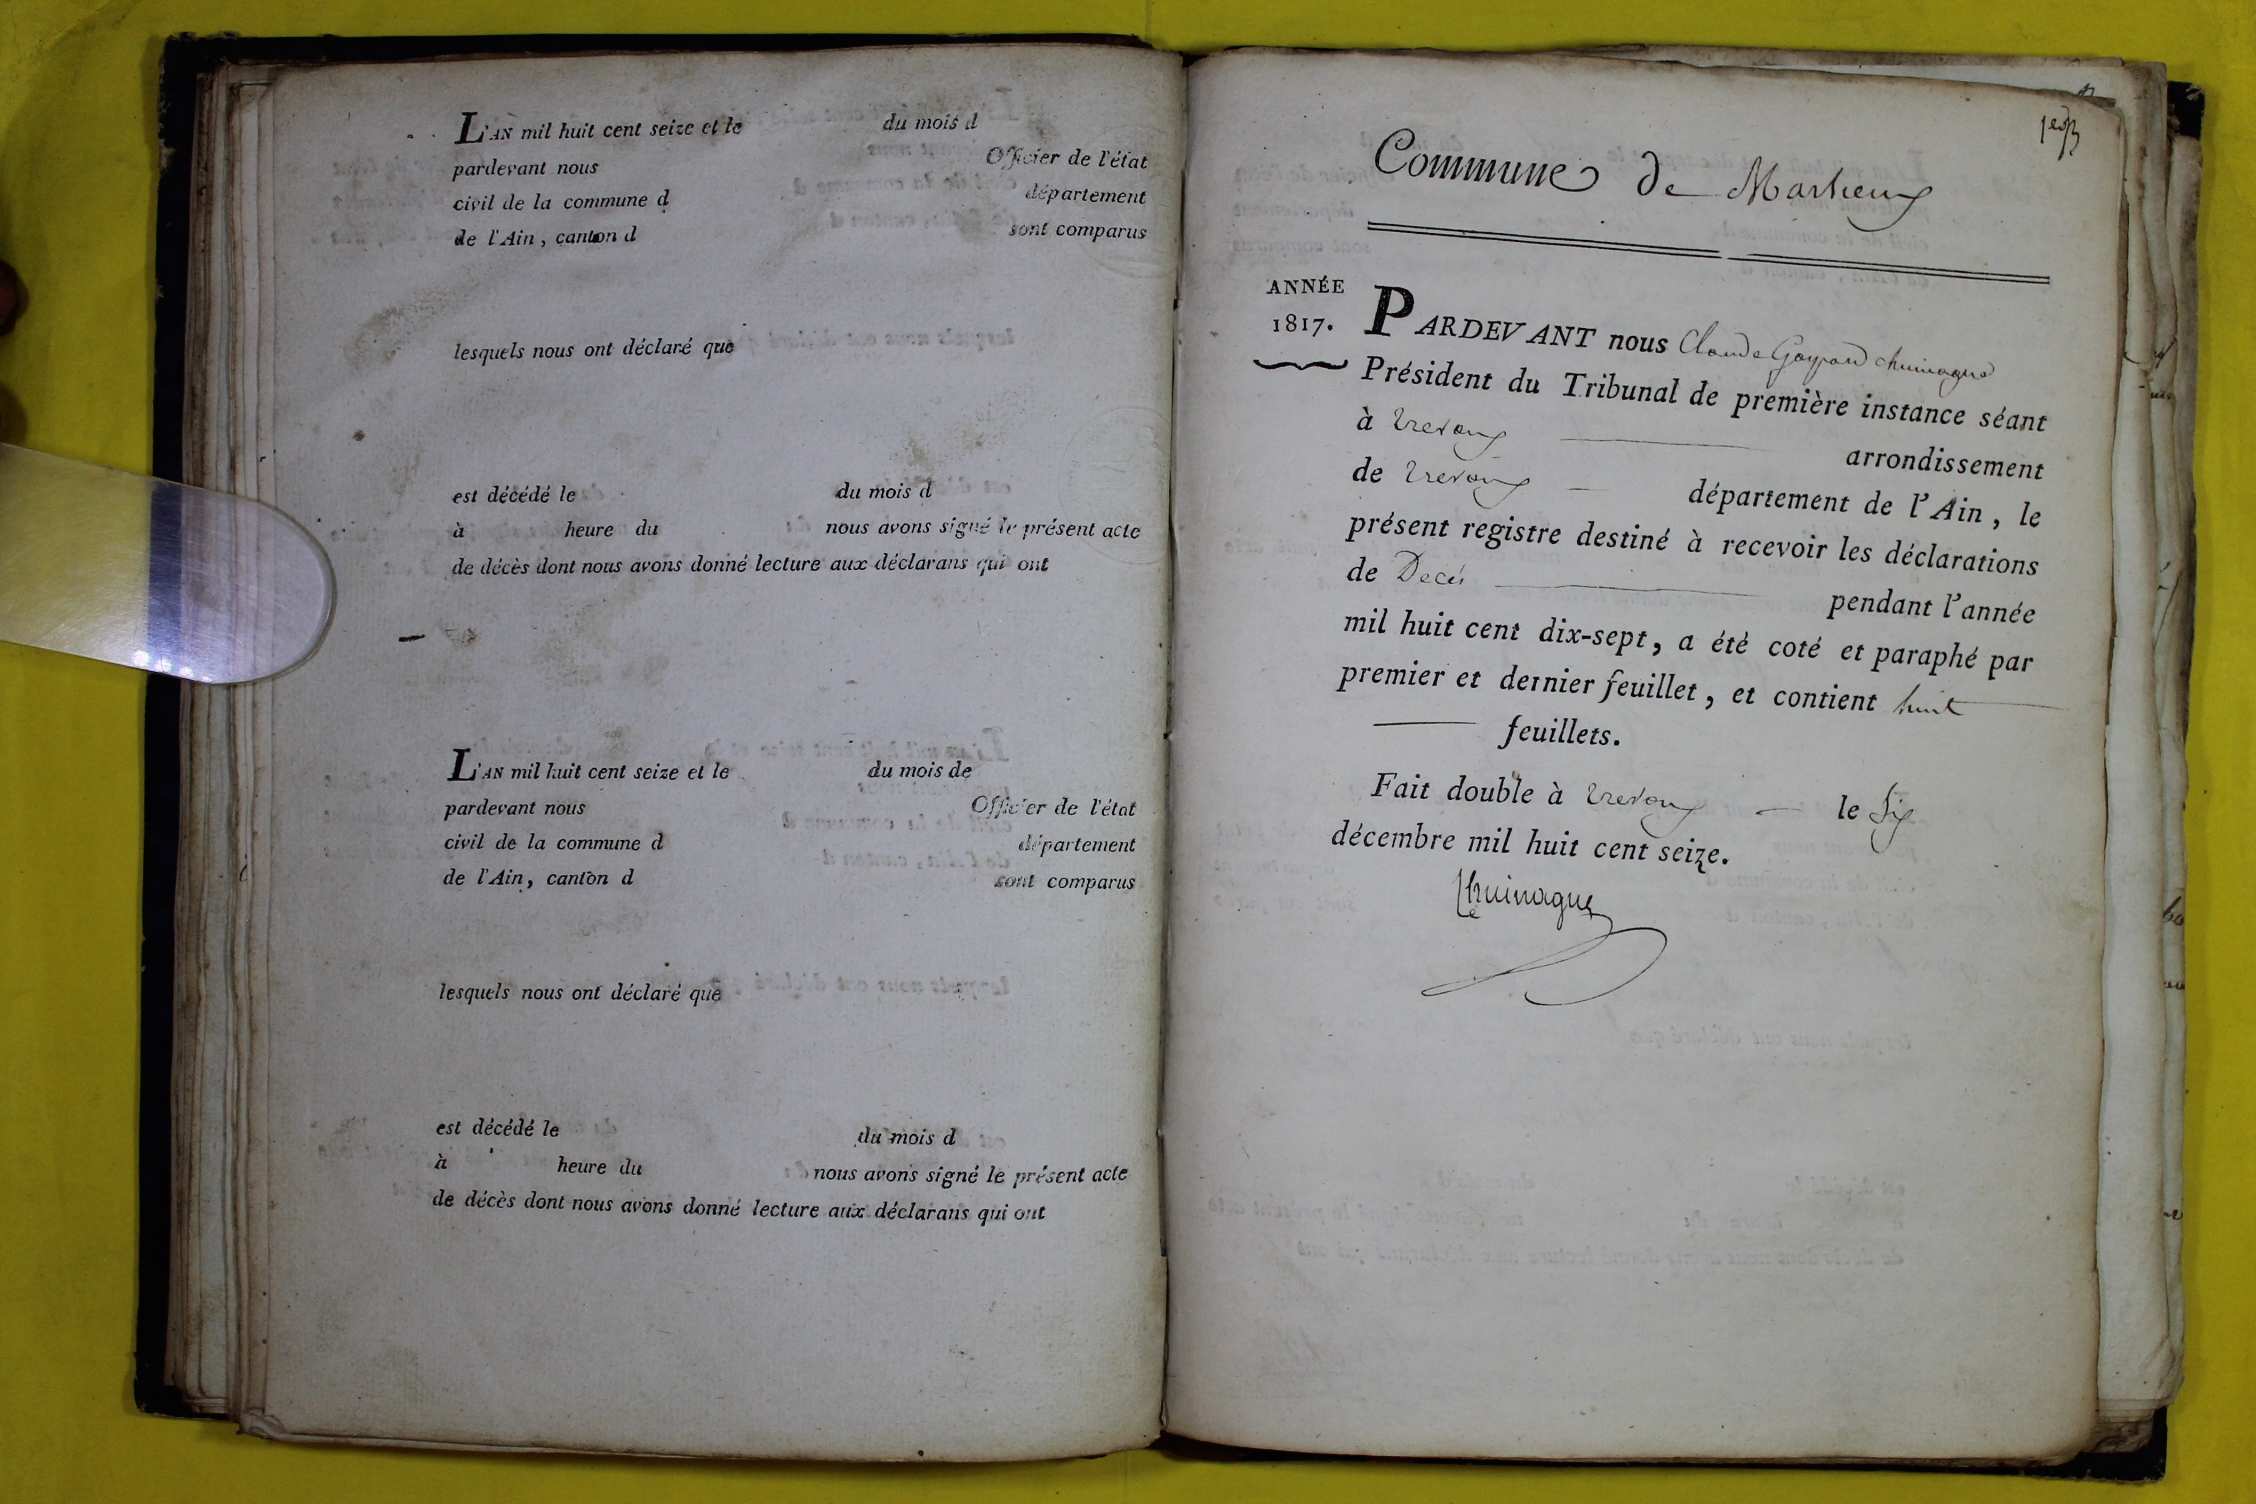 L'AN mil huit cent seize et le du mois d
pardevant nous Officier de l'état
civil de la commune d département
de l'Ain, canton d sont comparus
lesquels nous ont déclaré que
est décédé le du mois d
à heure du nous avons signé le présent acte
de décès dont nous avons donné lecture aux déclarans qui ont
L'AN mil huit cent seize et le du mois de
pardevant nous Officier de l'état
civil de la commune d département
de l'Ain, canton d sont comparus
lesquels nous ont déclaré que
est décédé le du mois d
à heure du nous avons signé le présent acte
de décès dont nous avons donné lecture aux déclarans qui ont
Commune de Marlieux
ANNÉE
1817.
PARDEVANT nous Claude Gaspard
Président du Tribunal de première instance séant
à Trevoux arrondissement
de Trevoux département de l'Ain, le
présent registre destiné à recevoir les déclarations
de Decés pendant l'année
mil huit cent dix-sept, a été coté et paraphé par
premier et dernier feuillet, et contient huit
feuillets.
Fait double à Trevoux le Six
décembre mil huit cent seize.